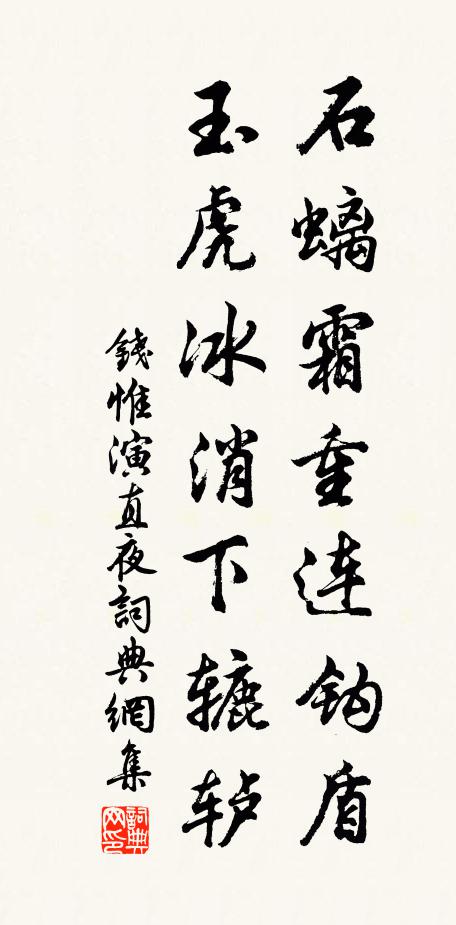 石螭霜重连钩盾
玉虎冰消下辘轳
錢惟演直夜詞典網集
詞典网印